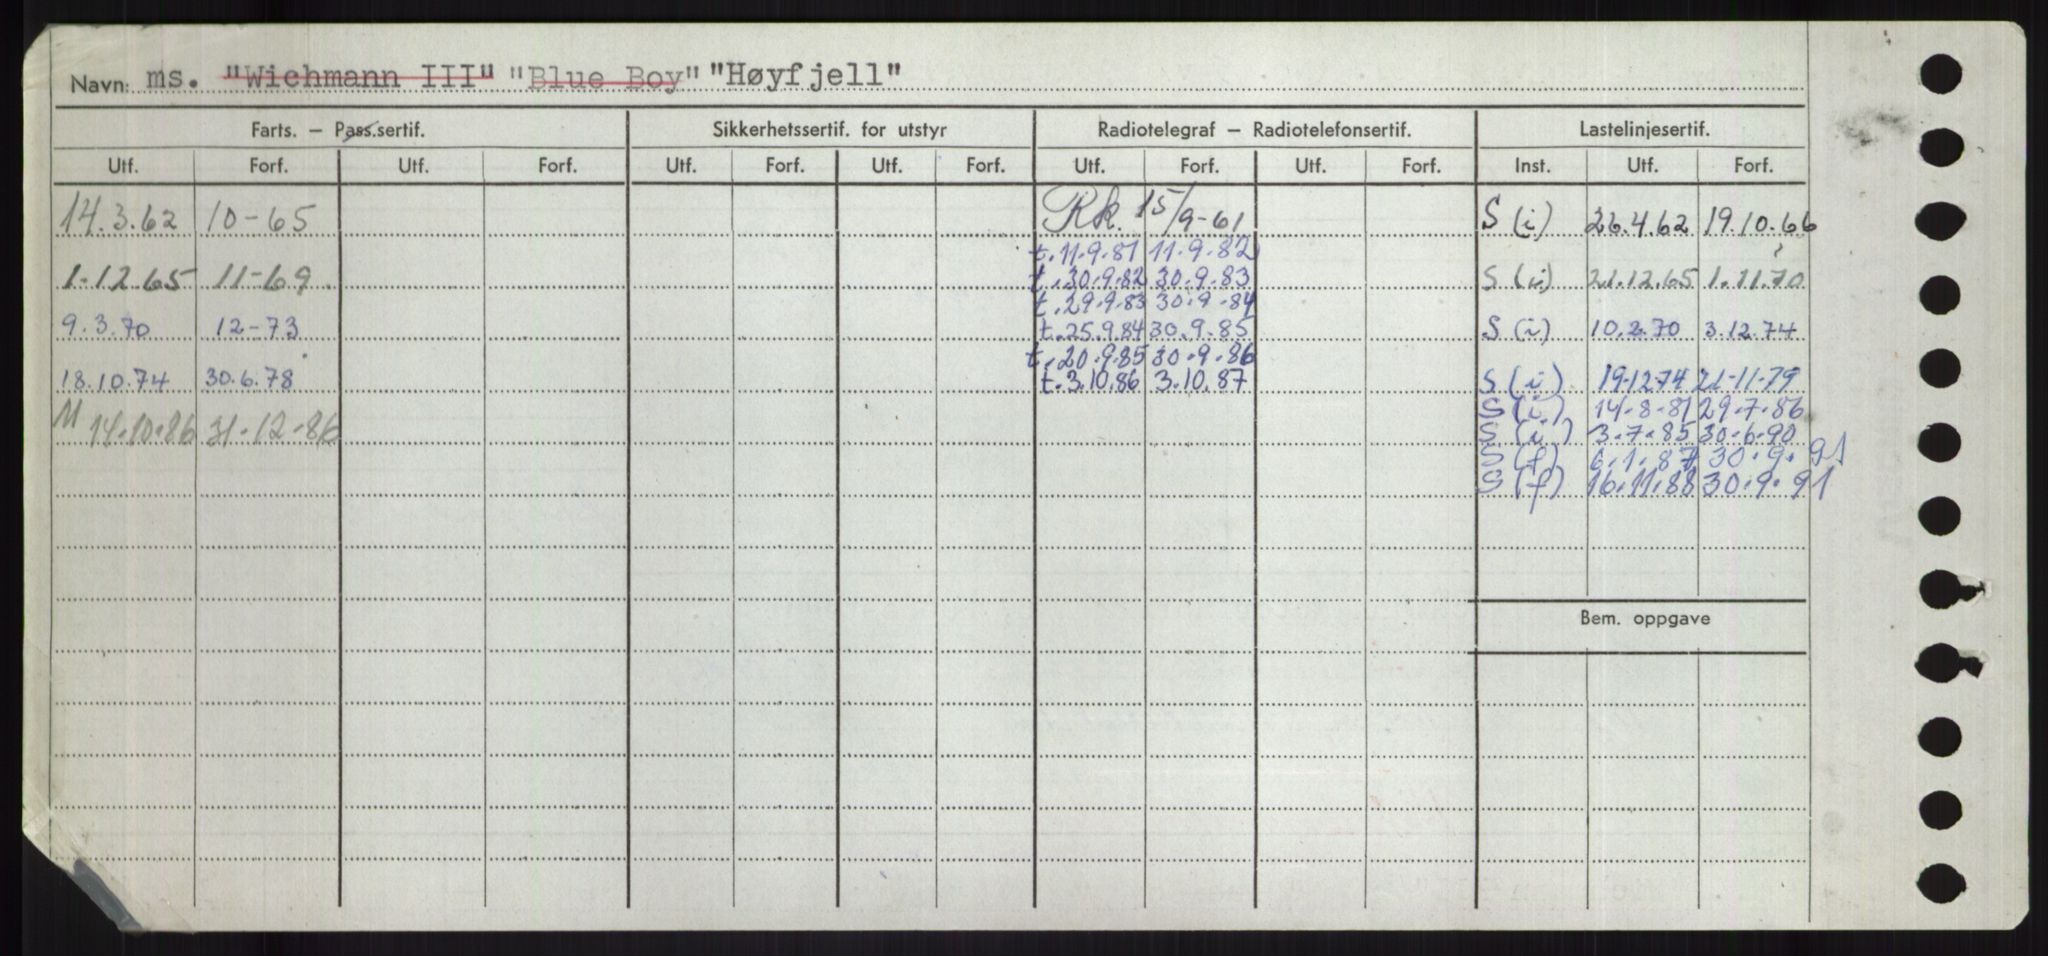 Navn: ms. "Wichmann III" "Blue Boy" "Høyfjell"
Farts. – Pass.sertif. Sikkerhetssertif. for utstyr Radiotelegraf – Radiotelefonsertif. Lastelinjesertif.
Utf. Forf. Utf. Forf. Utf. Forf. Utf. Forf. Utf. Forf. Utf. Forf. Inst. Utf. Forf.
14.3.62 10-65 Rk. 15/9-61 S (i) 26.4.62 19.10.66
t. 11.9.81 11.9.82
1-12.65 11-69 t. 30.9.82 30.9.83 S (i) 21.12.65 1.11.70
t. 29.9.83 30.9.84
9.3.70 12-73 t. 25.9.84 30.9.85 S (i) 10.2.70 3.12.74
t. 20.9.85 30.9.86
18.10.74 30.6.78 t. 3.10.86 3.10.87 S (i) 19.12.74 21-11-79
S (i) 14-8-81 29.7.86
M 14.10.86 31.12.86 S (i) 3.7.85 30.6.90
S (f) 6.1.87 30.9.91
S (f) 16.11.88 30.9.91
Bem. oppgave